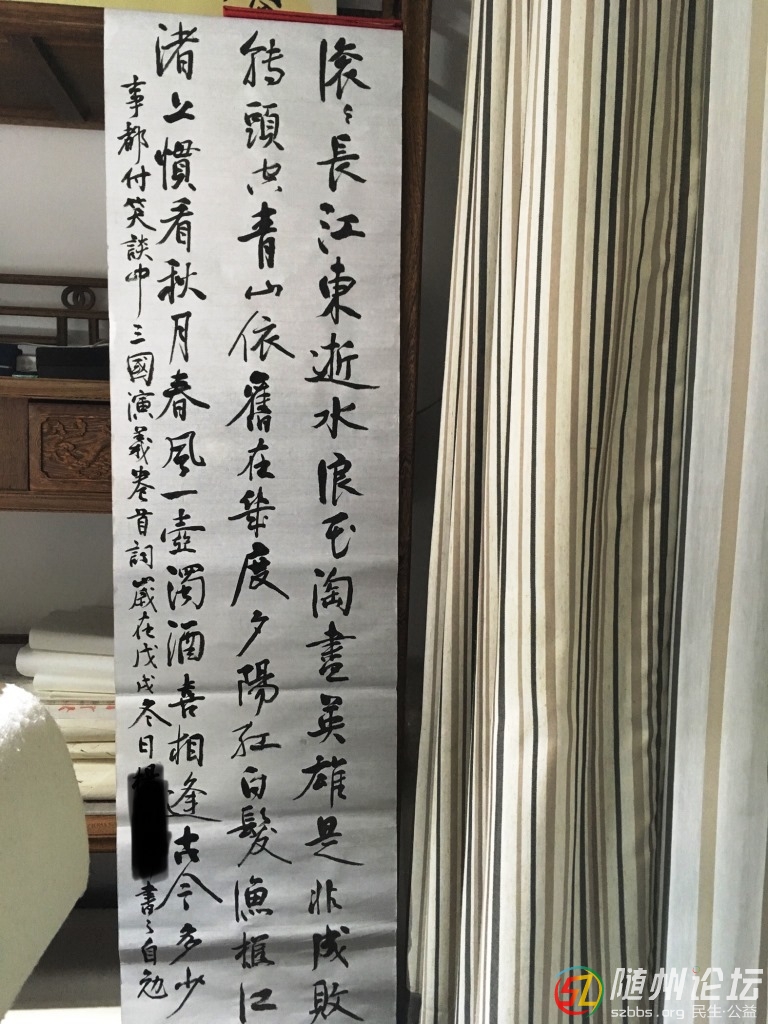 滚〻長江東逝水浪花淘盡英雄是非成敗
轉頭空青山依舊在幾度夕陽紅白髮漁樵江
渚上慣看秋月春風一壺濁酒喜相逢古今多少
事都付笑談中三國演義卷首詞歲在戊戌冬日 書以自勉
随州论坛
szbbs.org 民生·公益